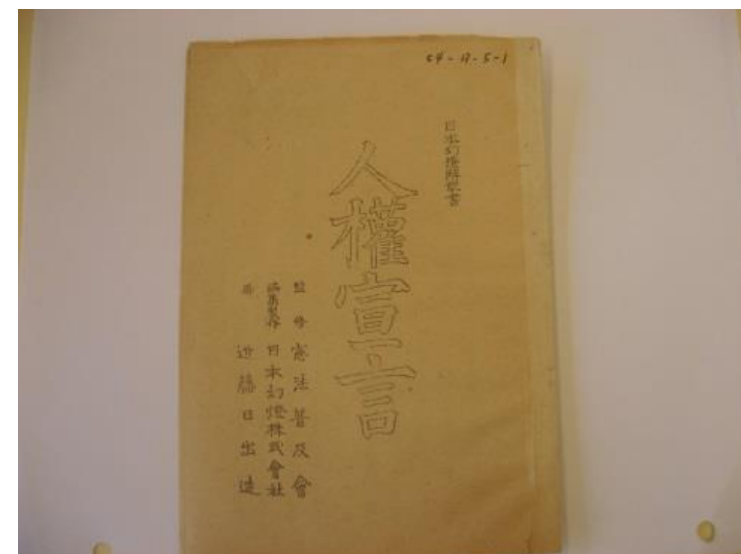 54-17-5-1
日本幻燈解説書
人權宣言
監修 憲法普及會
編集製作 日本幻燈株式會社
画 近藤日出造